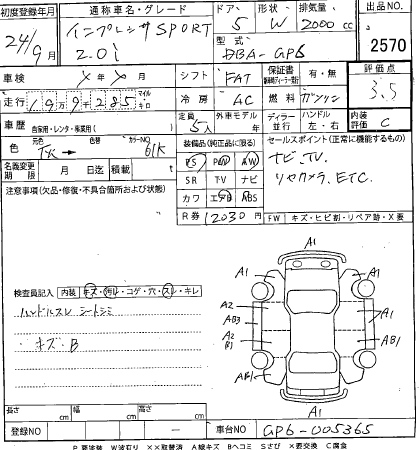 初度登録年月 通称車名・グレード ドア 形状 排気量 出品NO
24/9月 インプレッサSPORT 2.0i 5 W 2000cc 2570
型式 DBA-GP6
車検 × 年 × 月 シフト FAT 保証書 有・無 評価点
走行 マイル キロ 冷房 AC 燃料 ガソリン 3.5
車歴 自家用・レンタ・事業用( ) 定員 5人 外車モデル年 ディーラー 並行 ハンドル 左・右 内装評価 C
色 元色 色替 カラーNO 61K 装備品(純正品に限る) セールスポイント(正常に機能するもの)
名義変更期限 月 日迄 積載 PS PW AW ナビ、TV、
SR TV ナビ リヤカメラ、ETC、
注意事項(欠品・修復・不具合箇所および状態) カワ エアB ABS
R券 12030円 FW キズ・ヒビ割・リペア跡・X要
A1
A1 A1
検査員記入 内装 キズ・汚れ・コゲ・穴・スレ・キレ
A2 A1
ハンドルスレ シートシミ AB3
A2 AB1
キズ・B
AB1 A1
A1
長さ cm 幅 cm 高さ cm
登録NO ー 車台NO GP6-005365
P要塗装 W波有り ××取替済 A線キズ Bヘコミ Sさび ×要交換 C腐食